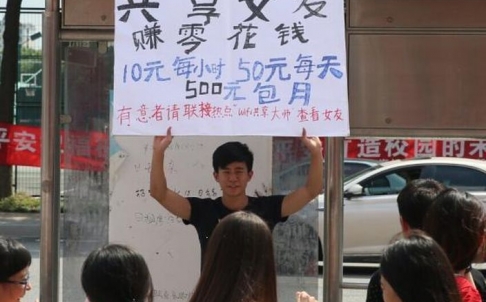 共享女友
赚零花钱
10元每小时 50元每天
500元包月
有意者请联接热点“wifi共享大师 查看女友
平安
造校园的未